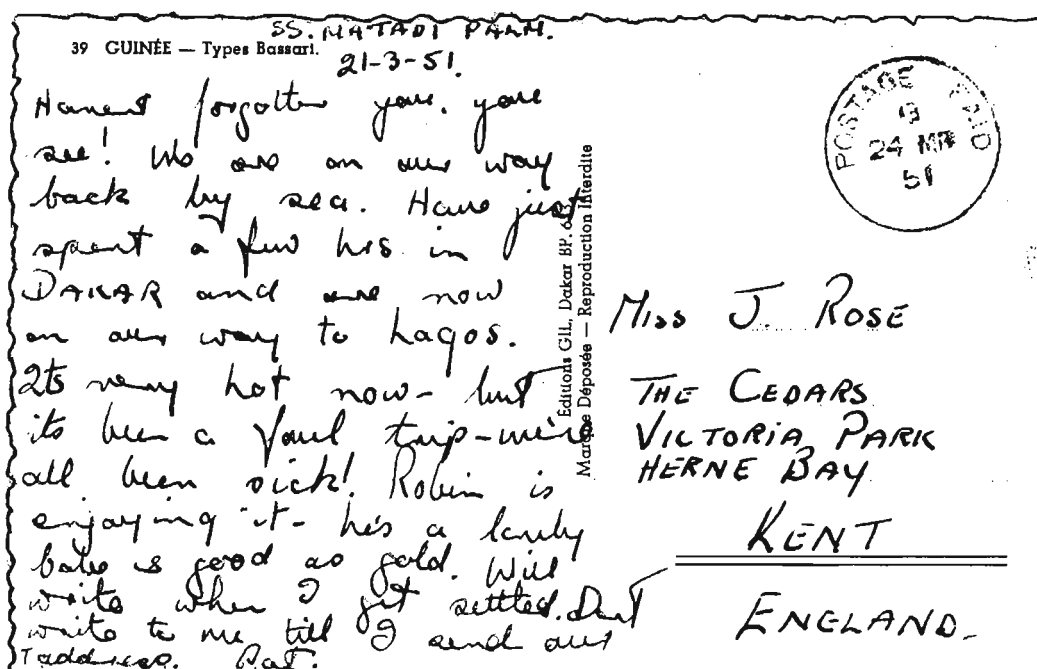 SS. MATADI PALM.
39 GUINÉE — Types Bassari.
21-3-51.
Havent forgotten you, you
see! We are on our way
back by sea. Have just
spent a few hrs in
DAKAR and are now
on our way to Lagos.
Its very hot now - but
its been a foul trip - we've
all been sick! Robin is
enjoying it - he's a lovely
babe is good as gold. Will
write when I get settled. Dont
write to me till I send our
address. Pat.
Editions Gil., Dakar BP.
Marque Déposée — Reproduction Interdite
POSTAGE PAID
24 MR
51
MISS J. ROSE
THE CEDARS
VICTORIA PARK
HERNE BAY
KENT
ENGLAND.